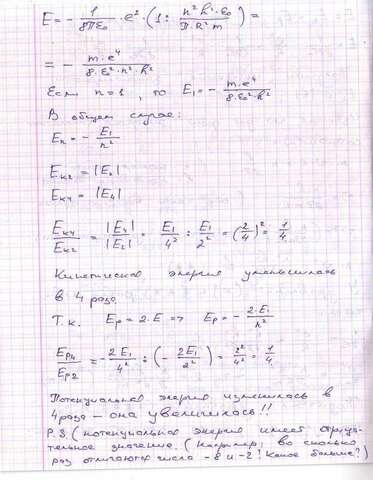 E = - 1/(8πε₀) · e² · (1 : n²h²·ε₀/(π·e²m)) =
= - m·e⁴/(8·ε₀²·n²·h²)
Если n=1, то E₁ = - m·e⁴/(8·ε₀²·h²)
В общем случае:
Eₙ = - E₁/n²
Eк₂ = |E₂|
Eк₄ = |E₄|
Eк₄/Eк₂ = |E₄|/|E₂| = E₁/4² : E₁/2² = (2/4)² = 1/4
Кинетическая энергия уменьшилась
в 4 раза
Т.к. Ep = 2·E => Ep = - 2·E₁/n²
Ep₄/Ep₂ = - 2E₁/4² : (- 2E₁/2²) = 2²/4² = 1/4
Потенциальная энергия изменилась в
4 раза – она увеличилась!!
P.S. (потенциальная энергия имеет отрица-
тельное значение. (Например, во сколько
раз отличаются числа -8 и -2? Какое больше?)